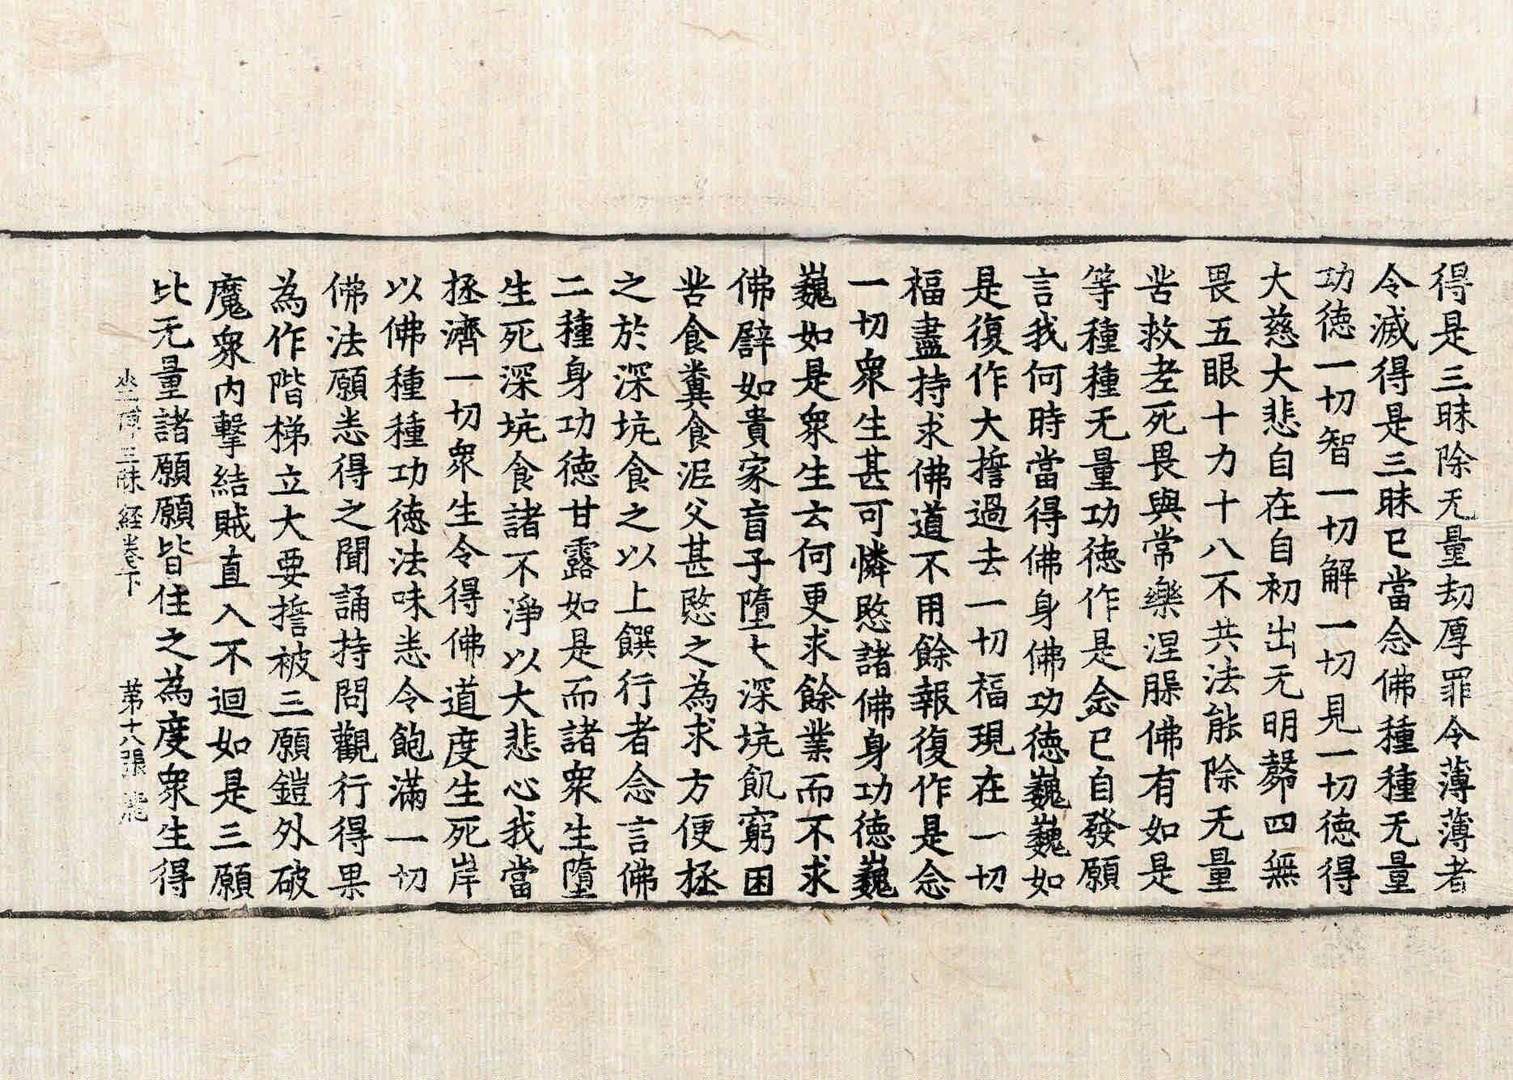 得是三昧除无量劫厚罪令薄薄者
令滅得是三昧已當念佛種種无量
功徳一切智一切解一切見一切徳得
大慈大悲自在自初出无明㲉四無
畏五眼十力十八不共法能除无量
苦救老死畏與常樂涅槃佛有如是
等種種无量功徳作是念已自發願
言我何時當得佛身佛功徳巍巍如
是復作大擔過去一切福現在一切
福盡持求佛道不用餘報復作是念
一切衆生甚可憐愍諸佛身功徳巍
巍如是衆生云何更求餘業而不求
佛譬如貴家盲子墮大深坑飢窮困
苦食糞食泥父甚愍之為求方便拯
之於深坑食之以上饌行者念言佛
二種身功徳甘露如是而諸衆生墮
生死深坑食諸不淨以大悲心我當
拯濟一切衆生令得佛道度生死岸
以佛種種功徳法味悉令飽滿一切
佛法願悉得之聞誦持問觀行得果
為作階梯立大要擔被三願鎧外破
魔衆内擊結賊直入不迴如是三願
比无量諸願願皆住之為度衆生得
坐禪三昧經卷下 第十八張